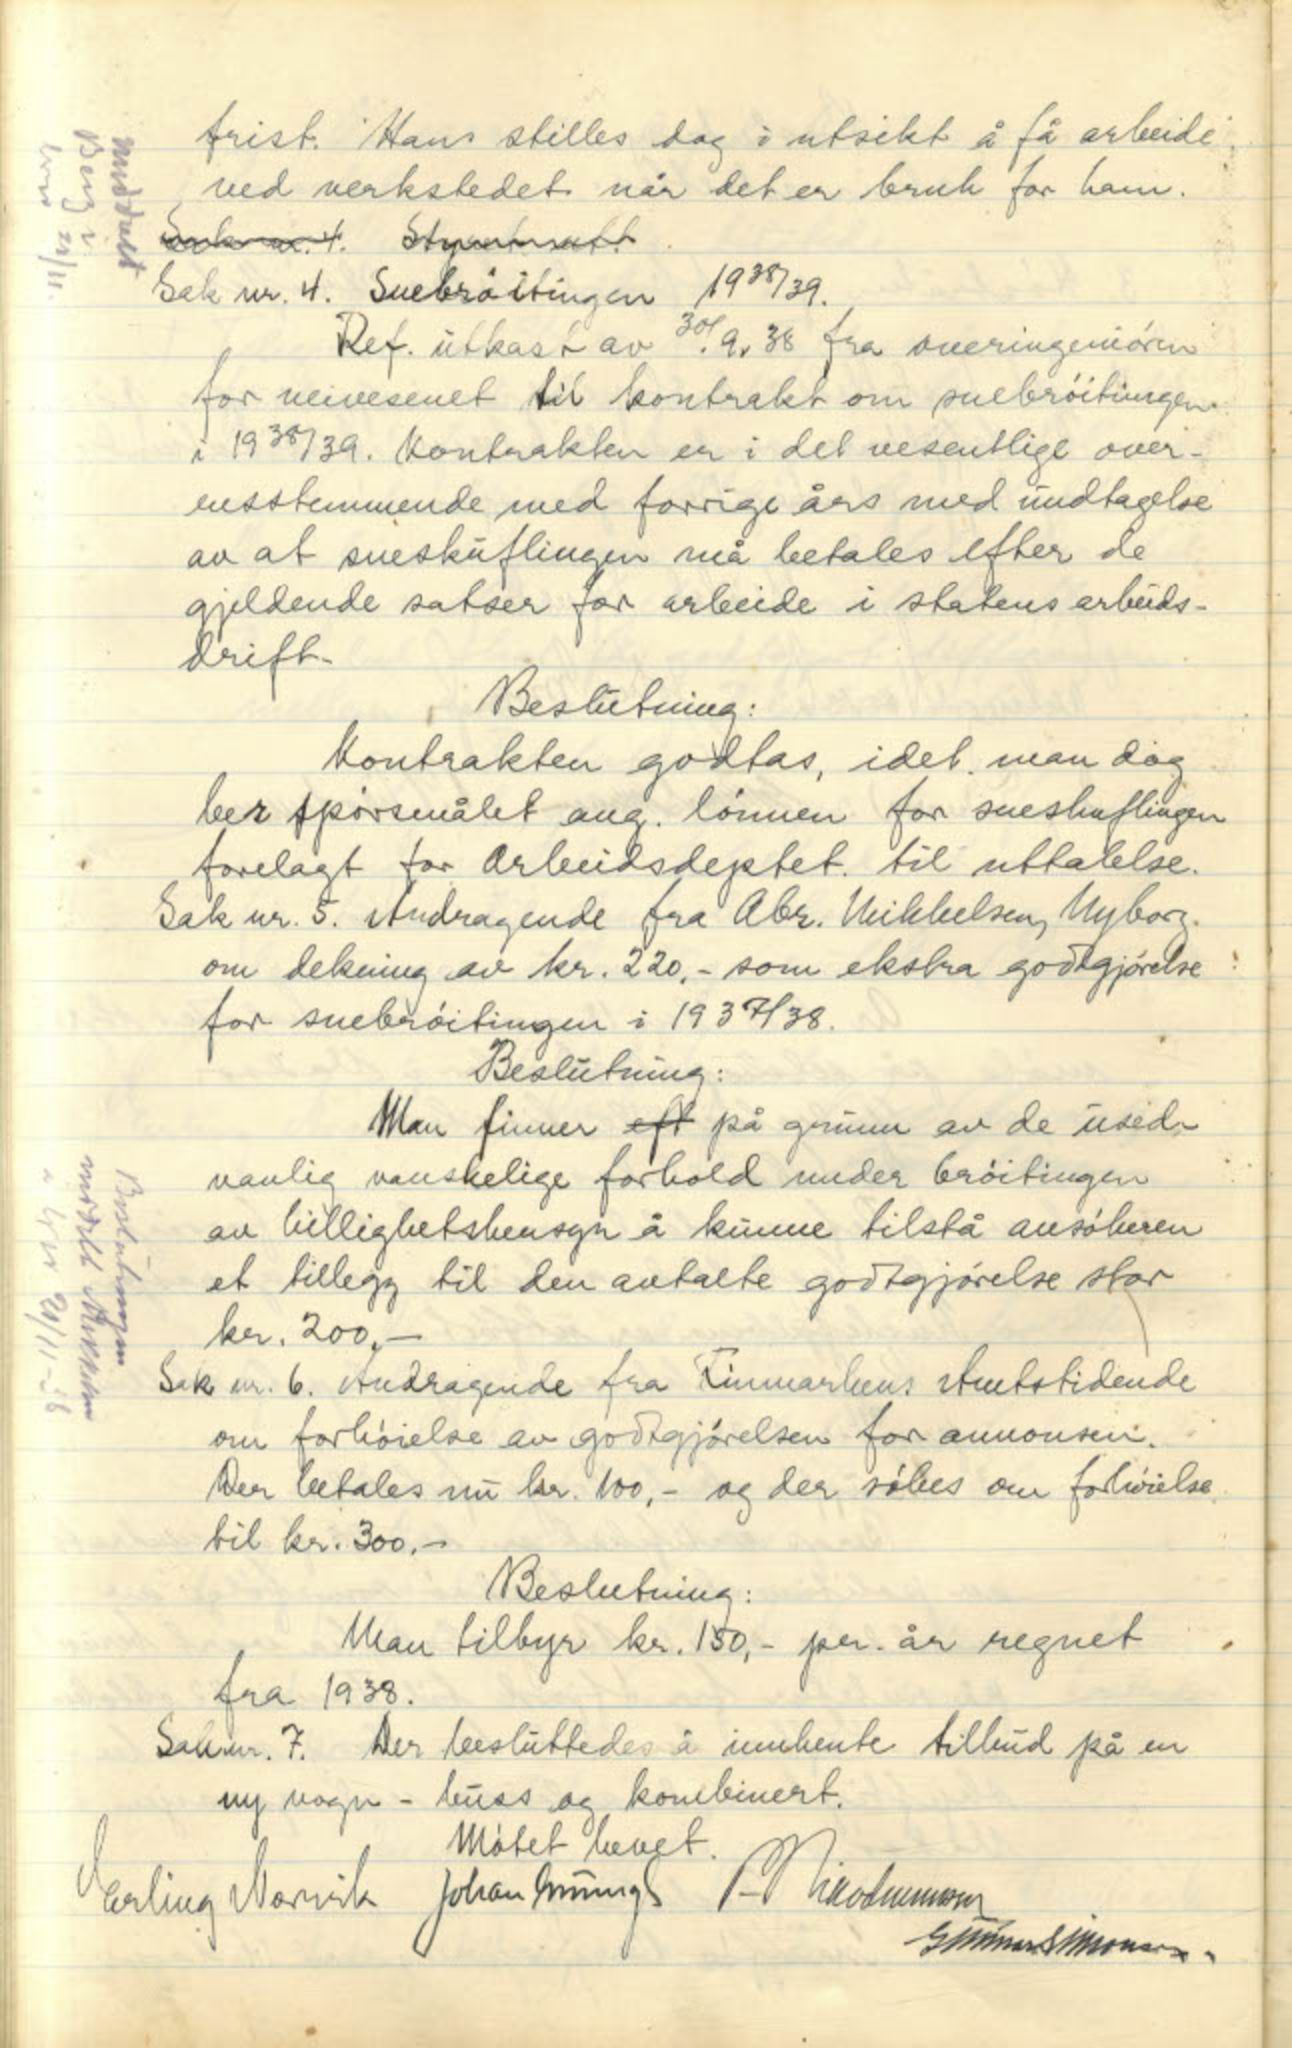 frist. Hans stilles dog i utsikt å få arbeide
ved verkstedet når det er bruk for ham.
Sak nr. 4.
Sak nr. 4. Snebröitingen 1938/39.
Ref. utkast av 30/9.38 fra overingeniören
for veivesenet til kontrakt om snebröitingen
i 1938/39. Kontrakten er i det vesentlige over-
ensstemmende med forrige års med undtagelse
av at sneskuflingen må betales efter de
gjeldende satser for arbeide i statens arbeids-
drift.
Beslutning:
Kontrakten godtas, idet man dog
ber spörsmålet ang. lönnen for sneskuflingen
forelagt for Arbeidsdeptet. til uttalelse.
Sak nr. 5. Andragende fra Abr. Mikkelsen, Nyborg
om dekning av kr. 220,- som ekstra godtgjörelse
for snebröitingen i 1937/38.
Beslutning:
Man finner eft på grunn av de used-
vanlig vanskelige forhold under bröitingen
av billighetshensyn å kunne tilstå ansökeren
et tillegg til den avtalte godtgjörelse stor
kr. 200,-
Sak nr. 6. Andragende fra Finmarkens Amtstidende
om forhöielse av godtgjörelsen for annonsen.
Der betales nu kr. 100,- og der sökes om forhöielse
til kr. 300.-
Beslutning:
Man tilbyr kr. 150,- per. år regnet
fra 1938.
Sak nr. 7. Der besluttedes å innhente tilbud på en
ny vogn - buss og kombinert.
Mötet hevet.
Erling Norvik Johan
Gunnar Simonsen.
meddelt
Berg i
brev 21/11.
Beslutningen
meddelt Mikkelsen
i brev 21/11-38